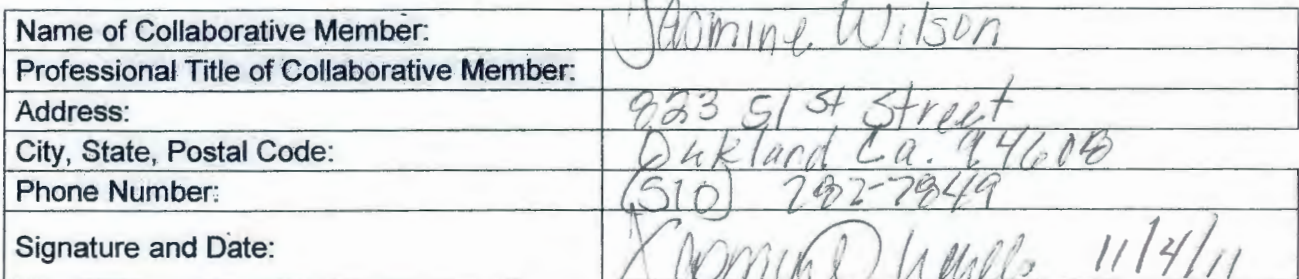 Name of Collaborative Member: Jasmine Wilson
Professional Title of Collaborative Member:
Address: 823 51 st Street
City, State, Postal Code: Oakland Ca. 94608
Phone Number: (510) 282-7849
Signature and Date: 11/4/11